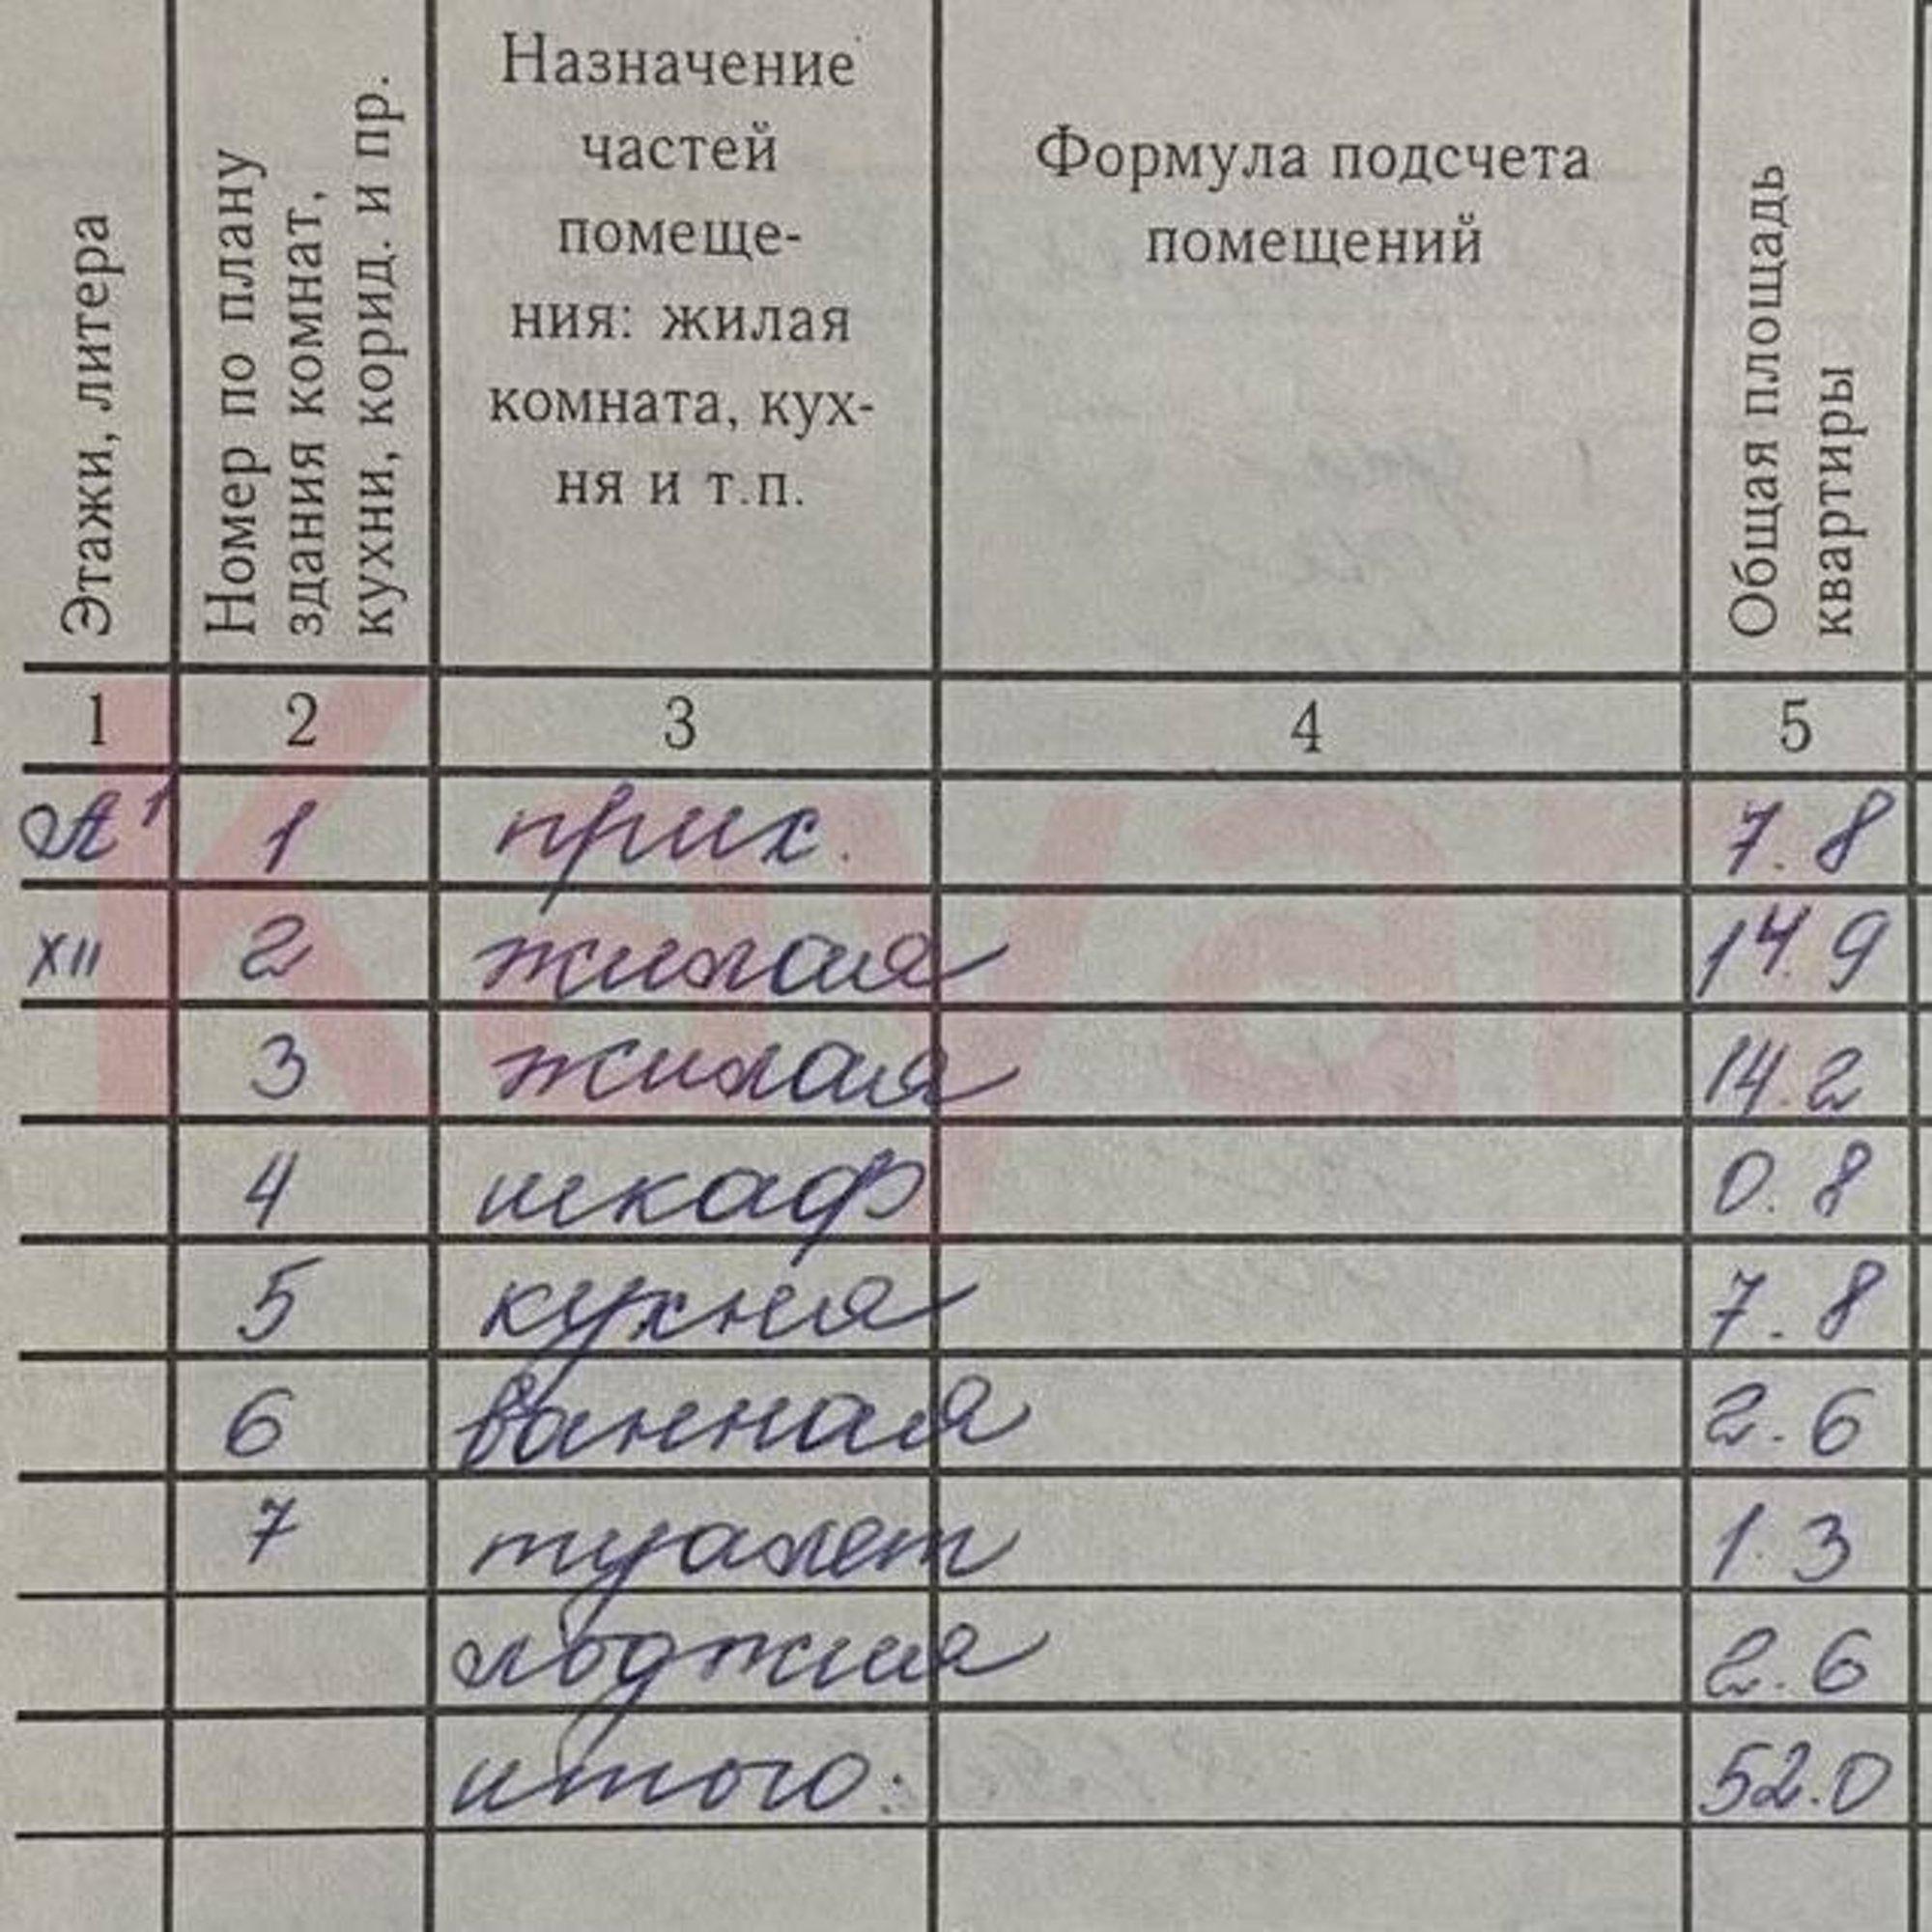 Этажи, литера
Номер по плану
здания комнат,
кухни, корид. и пр.
Назначение
частей
помеще-
ния: жилая
комната, кух-
ня и т.п.
Формула подсчета
помещений
Общая площадь
квартиры
1 2 3 4 5
А¹ 1 прих. 7.8
XII 2 жилая 14.9
3 жилая 14.2
4 шкаф 0.8
5 кухня 7.8
6 ванная 2.6
7 туалет 1.3
лоджия 2.6
итого: 52.0
Kayar